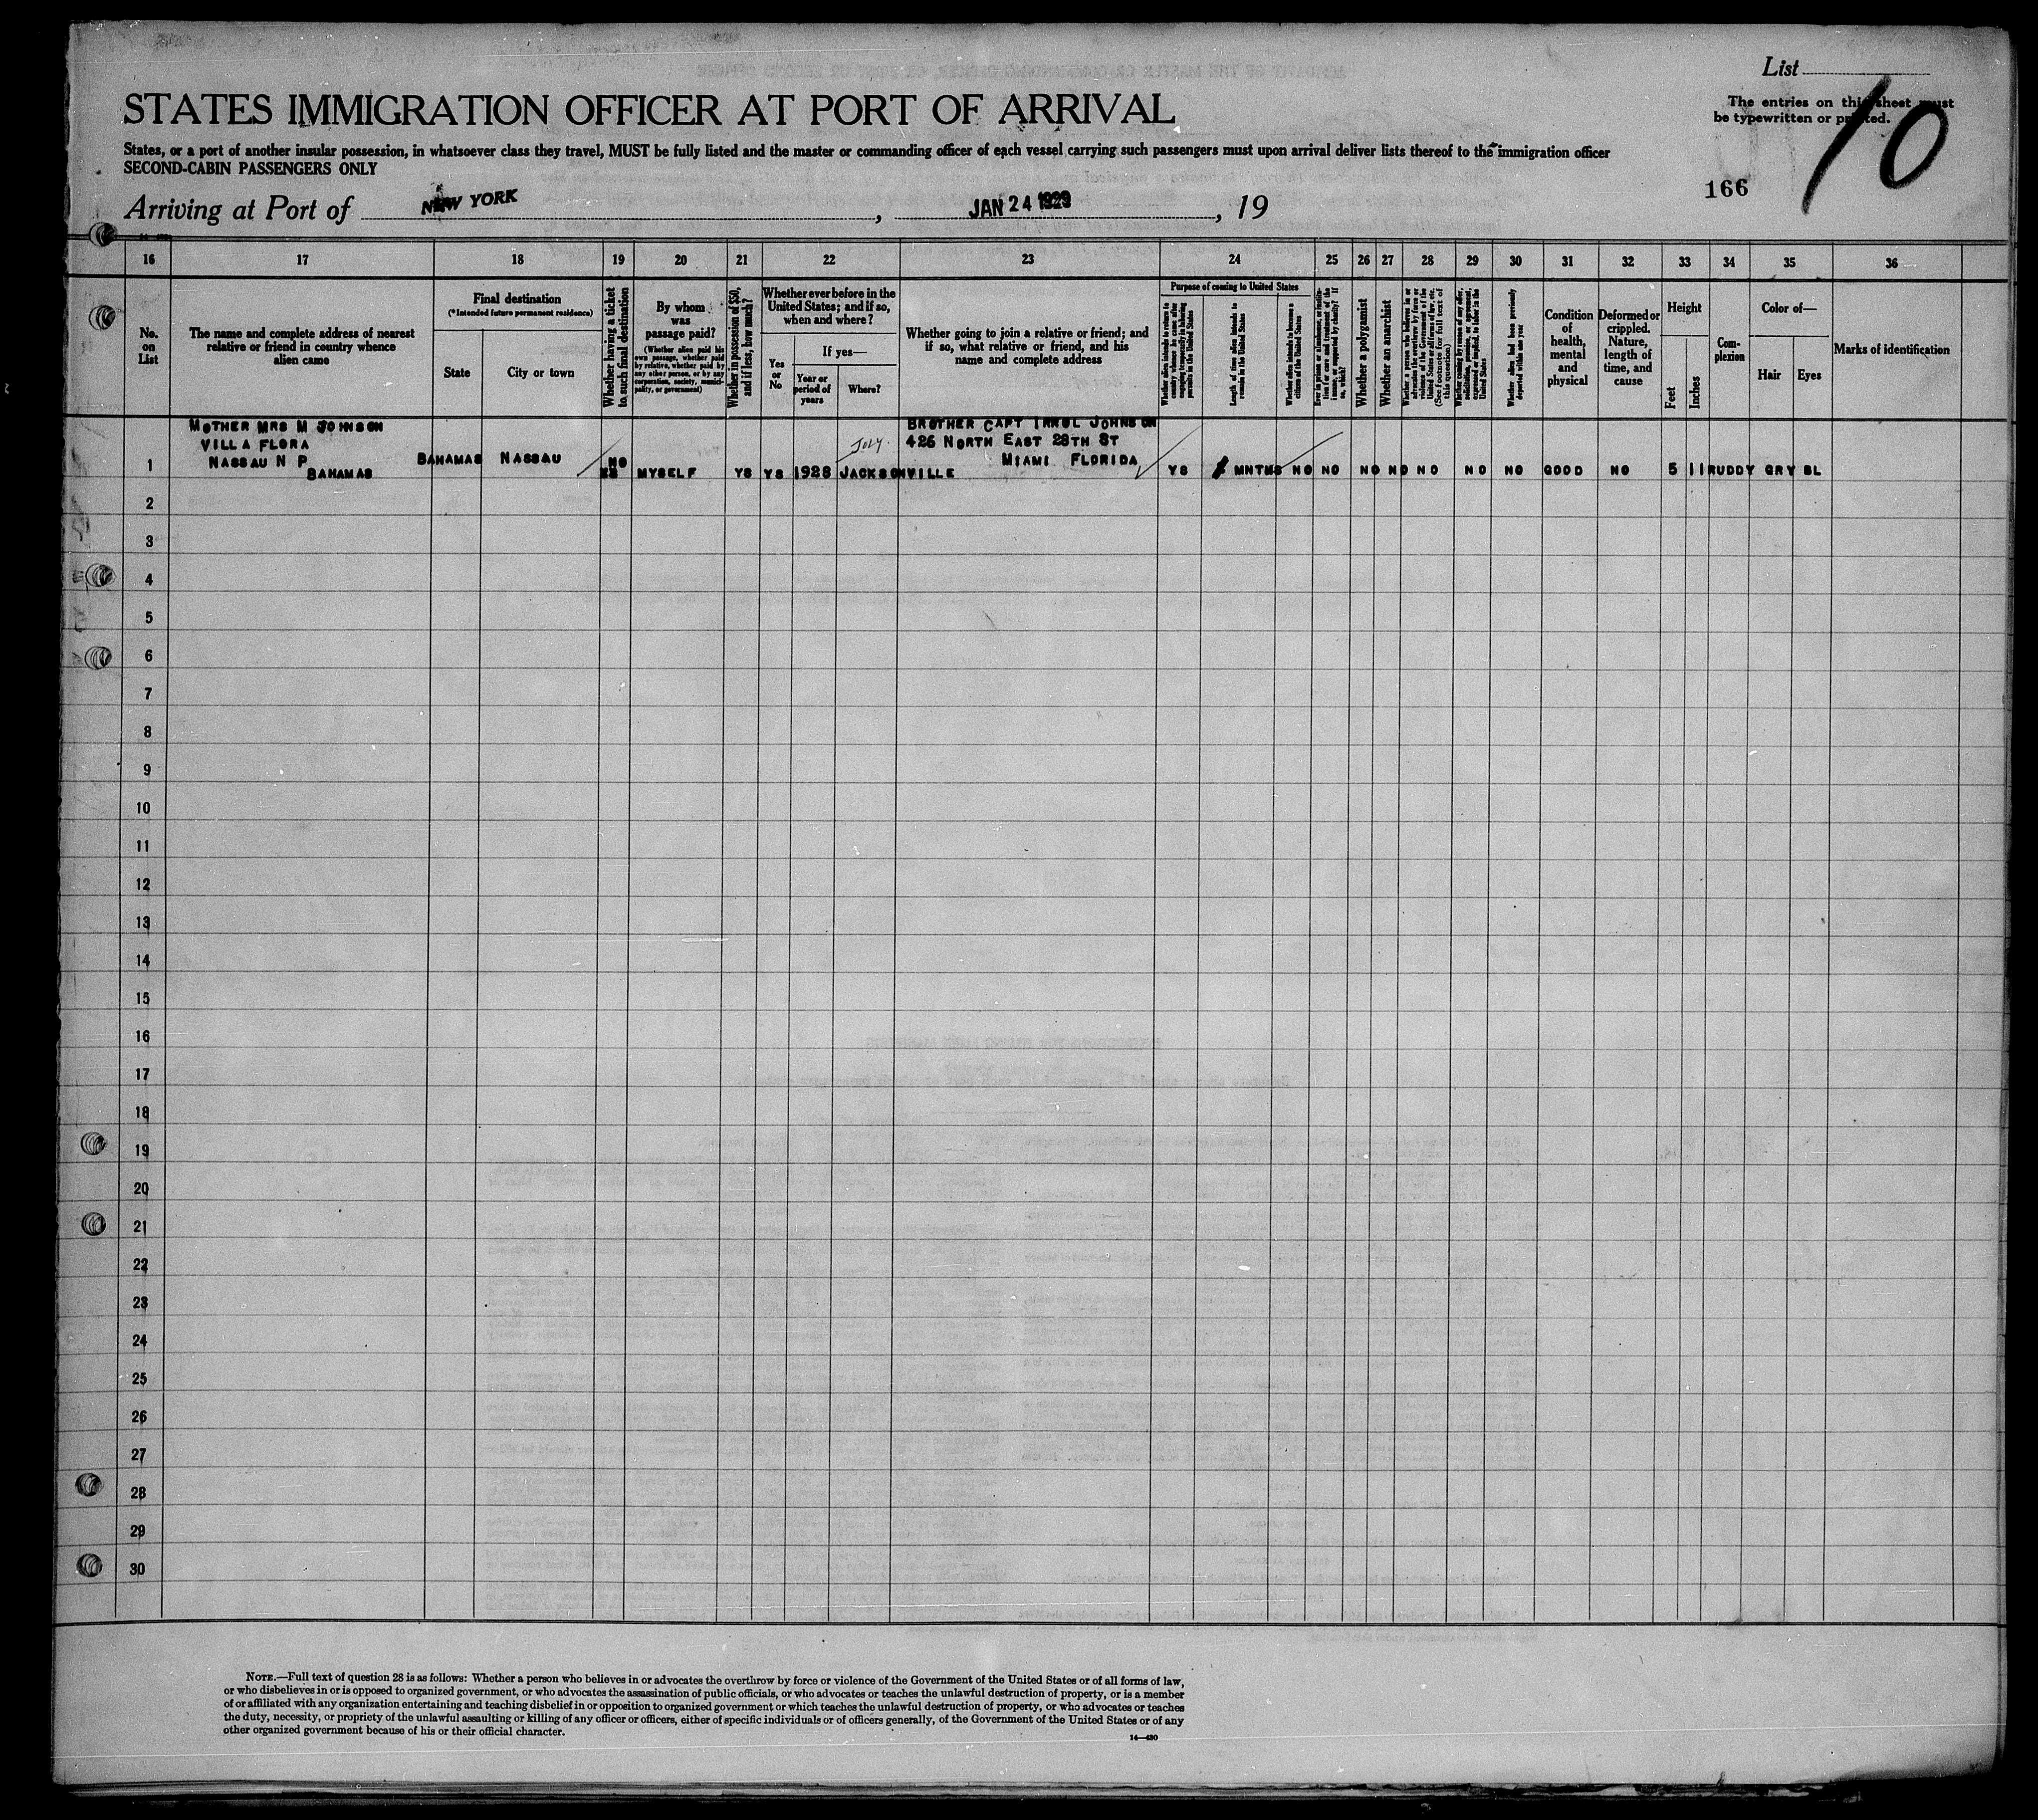 List
10
The entries on this sheet must
be typewritten or printed.
STATES IMMIGRATION OFFICER AT PORT OF ARRIVAL
States, or a port of another insular possession, in whatsoever class they travel, MUST be fully listed and the master or commanding officer of each vessel carrying such passengers must upon arrival deliver lists thereof to the immigration officer
SECOND-CABIN PASSENGERS ONLY
166
Arriving at Port of NEW YORK, JAN 24 1929, 19
16 17 18 19 20 21 22 23 24 25 26 27 28 29 30 31 32 33 34 35 36
No. on List
The name and complete address of nearest
relative or friend in country whence
alien came
Final destination
(*Intended future permanent residence)
State
City or town
Whether having a ticket
to such final destination
By whom
was
passage paid?
(Whether alien paid his
own passage, whether paid
by relative, whether paid by
any other person, or by any
corporation, society, munici-
pality, or government)
Whether in possession of $50,
and if less, how much?
Whether ever before in the
United States; and if so,
when and where?
Yes
or
No
If yes—
Year or
period of
years
Where?
Whether going to join a relative or friend; and
if so, what relative or friend, and his
name and complete address
Purpose of coming to United States
Whether alien intends to return to
country whence he came after
engaging temporarily in laboring
pursuits in the United States
Length of time alien intends to
remain in the United States
Whether alien intends to become a
citizen of the United States
Ever in prison or almshouse, or institu-
tion for care and treatment of the
insane, or supported by charity? If
so, which?
Whether a polygamist
Whether an anarchist
Whether a person who believes in or
advocates the overthrow by force or
violence of the Government of the
United States or all forms of law, etc.
(See footnote for full text of
this question)
Whether coming by reason of any offer,
solicitation, promise, or agreement,
expressed or implied, to labor in the
United States
Whether alien had been previously
deported within one year
Condition
of
health,
mental
and
physical
Deformed or
crippled.
Nature,
length of
time, and
cause
Height
Feet
Inches
Com-
plexion
Color of—
Hair
Eyes
Marks of identification
MOTHER MRS M JOHNSON
VILLA FLORA
NASSAU N P
BAHAMAS
BAHAMAS NASSAU NO MYSELF YS YS 1928 JACKSONVILLE
July.
BROTHER CAPT IRROL JOHNSON
426 NORTH EAST 28TH ST
MIAMI FLORIDA
YS MNTHS NO NO NO NO NO NO NO GOOD NO 5 11 RUDDY GRY BL
1
2
3
4
5
6
7
8
9
10
11
12
13
14
15
16
17
18
19
20
21
22
23
24
25
26
27
28
29
30
NOTE.—Full text of question 28 is as follows: Whether a person who believes in or advocates the overthrow by force or violence of the Government of the United States or of all forms of law,
or who disbelieves in or is opposed to organized government, or who advocates the assassination of public officials, or who advocates or teaches the unlawful destruction of property, or is a member
of or affiliated with any organization entertaining and teaching disbelief in or opposition to organized government or which teaches the unlawful destruction of property, or who advocates or teaches
the duty, necessity, or propriety of the unlawful assaulting or killing of any officer or officers, either of specific individuals or of officers generally, of the Government of the United States or of any
other organized government because of his or their official character.
14—430